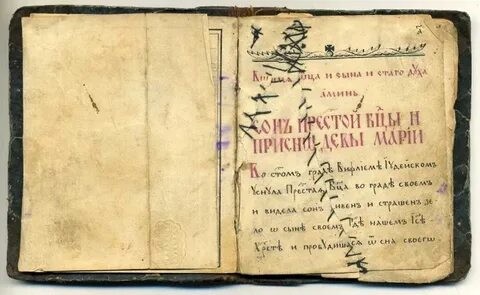 Во имя ѿца и сына и стаго духа
аминь
Сонъ престой бцы и
приснѡ девы марїи
Во стомъ граде Вифлїеме Іудейском
Уснула Престая Бца во граде своемъ
и видела сонъ дивенъ и страшенъ зе
ло ѿ сыне своемъ Гдѣ нашемъ Ісѣ
Христе и пробудишася ѿ сна своегѡ